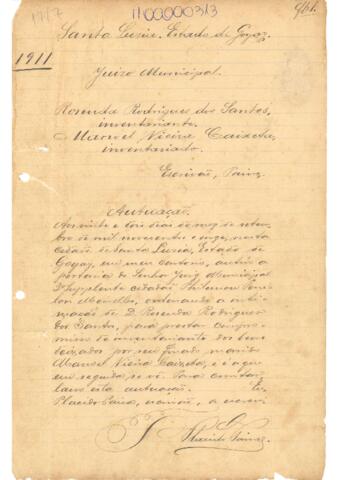 1100000313
Santa Luzia. Estado de Goyaz.
1911
Juizo Municipal.
Rosenda Rodrigues dos Santos,
inventariante.
Manoel Vieira Caixeta,
inventariado.
Escrivão,
Autuação.
Aos vinte e dois dias do mez de setem-
bro de mil novecentos e onze, nesta
cidade de Santa Luzia, Estado de
Goyaz, em meu cartorio, autúo a
portaria do Senhor Juiz Municipal
Supplente cidadão
Meirelles, ordenando a inti-
mação de D. Rosenda Rodrigues
dos Santos, para prestar compro-
misso de inventariante dos bens
deixados por seu finado marido
Manoel Vieira Caixeta, e é a que
em seguida se vê. Para constar,
lavro esta autuação. Eu,
escrivão, a escrevi.